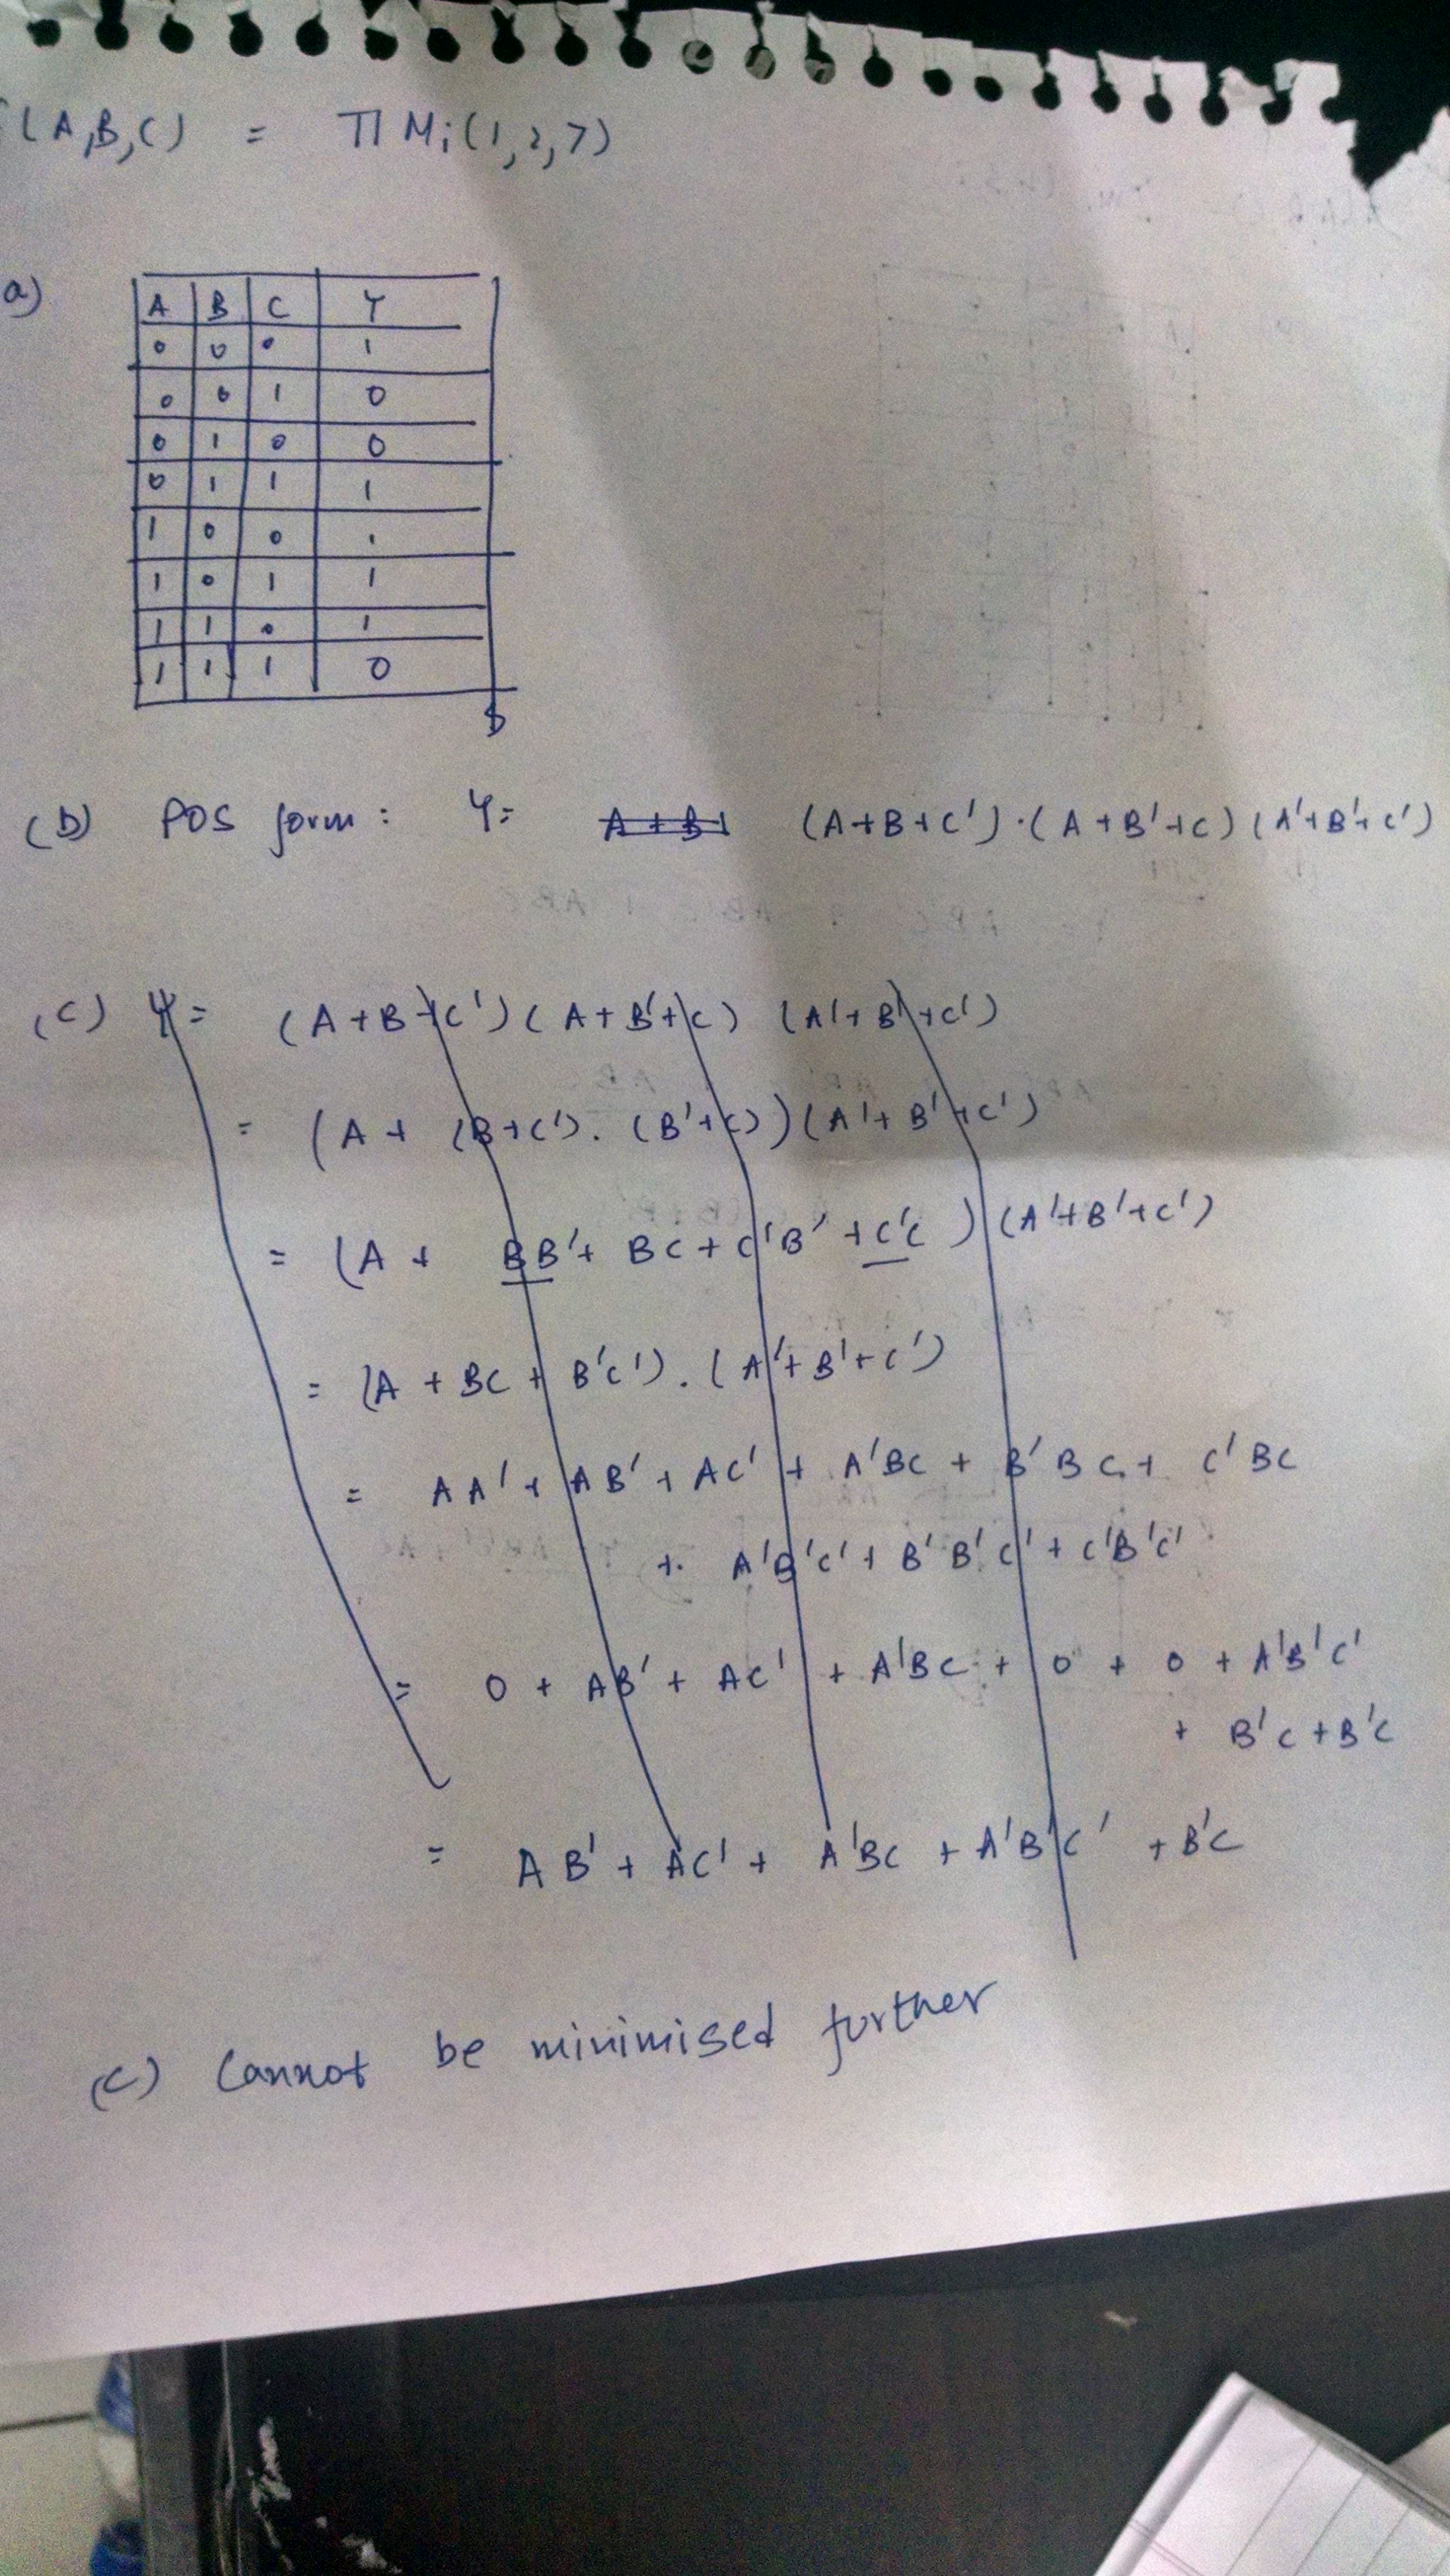 (A,B,C) = Π Mi(1,2,7)
a)
A B C Y
0 0 0 1
0 0 1 0
0 1 0 0
0 1 1 1
1 0 0 1
1 0 1 1
1 1 0 1
1 1 1 0
(b) POS form: Y= A+B+ (A+B+C')·(A+B'+C)(A'+B'+C')
(C) Y= (A+B+C')(A+B'+C) (A'+B'+C')
= (A+ (B+C').(B'+C))(A'+B'+C')
= (A+ BB'+ BC+C'B'+C'C)(A'+B'+C')
= (A+BC+B'C').(A'+B'+C')
= AA'+AB'+AC'+A'BC+B'BC+C'BC
+ A'B'C'+B'B'C'+C'B'C'
= 0+AB'+AC'+A'BC+0+0+A'B'C'
+ B'C+B'C
= AB'+AC'+A'BC+A'B'C'+B'C
(C) Cannot be minimised further